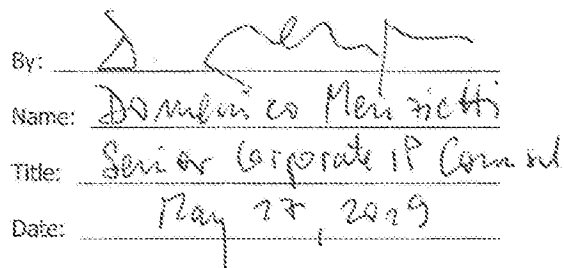 By:
Name: Domenico Menzietti
Title: Senior Corporate IP Counsel
Date: May 17, 2019